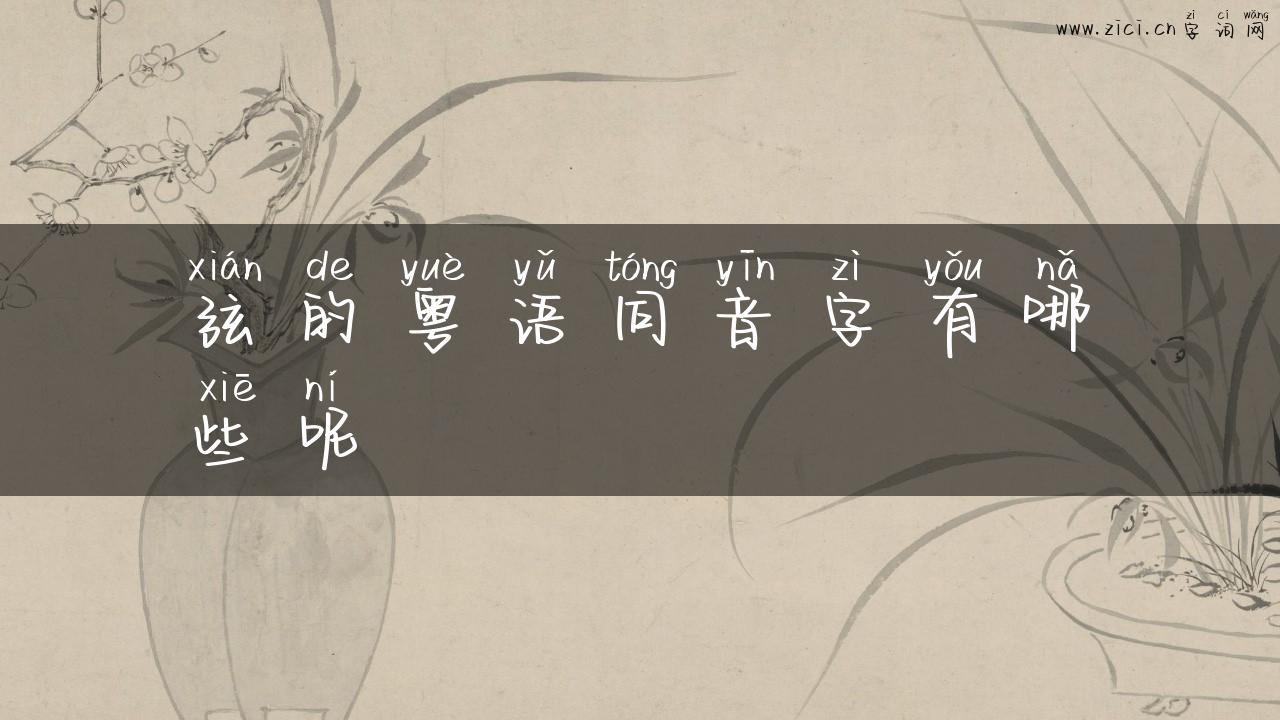 zì cí wǎng
www.zici.cn 字 词 网
xián de yuè yǔ tóng yīn zì yǒu nǎ
弦 的 粤 语 同 音 字 有 哪
xiē ní
些 呢